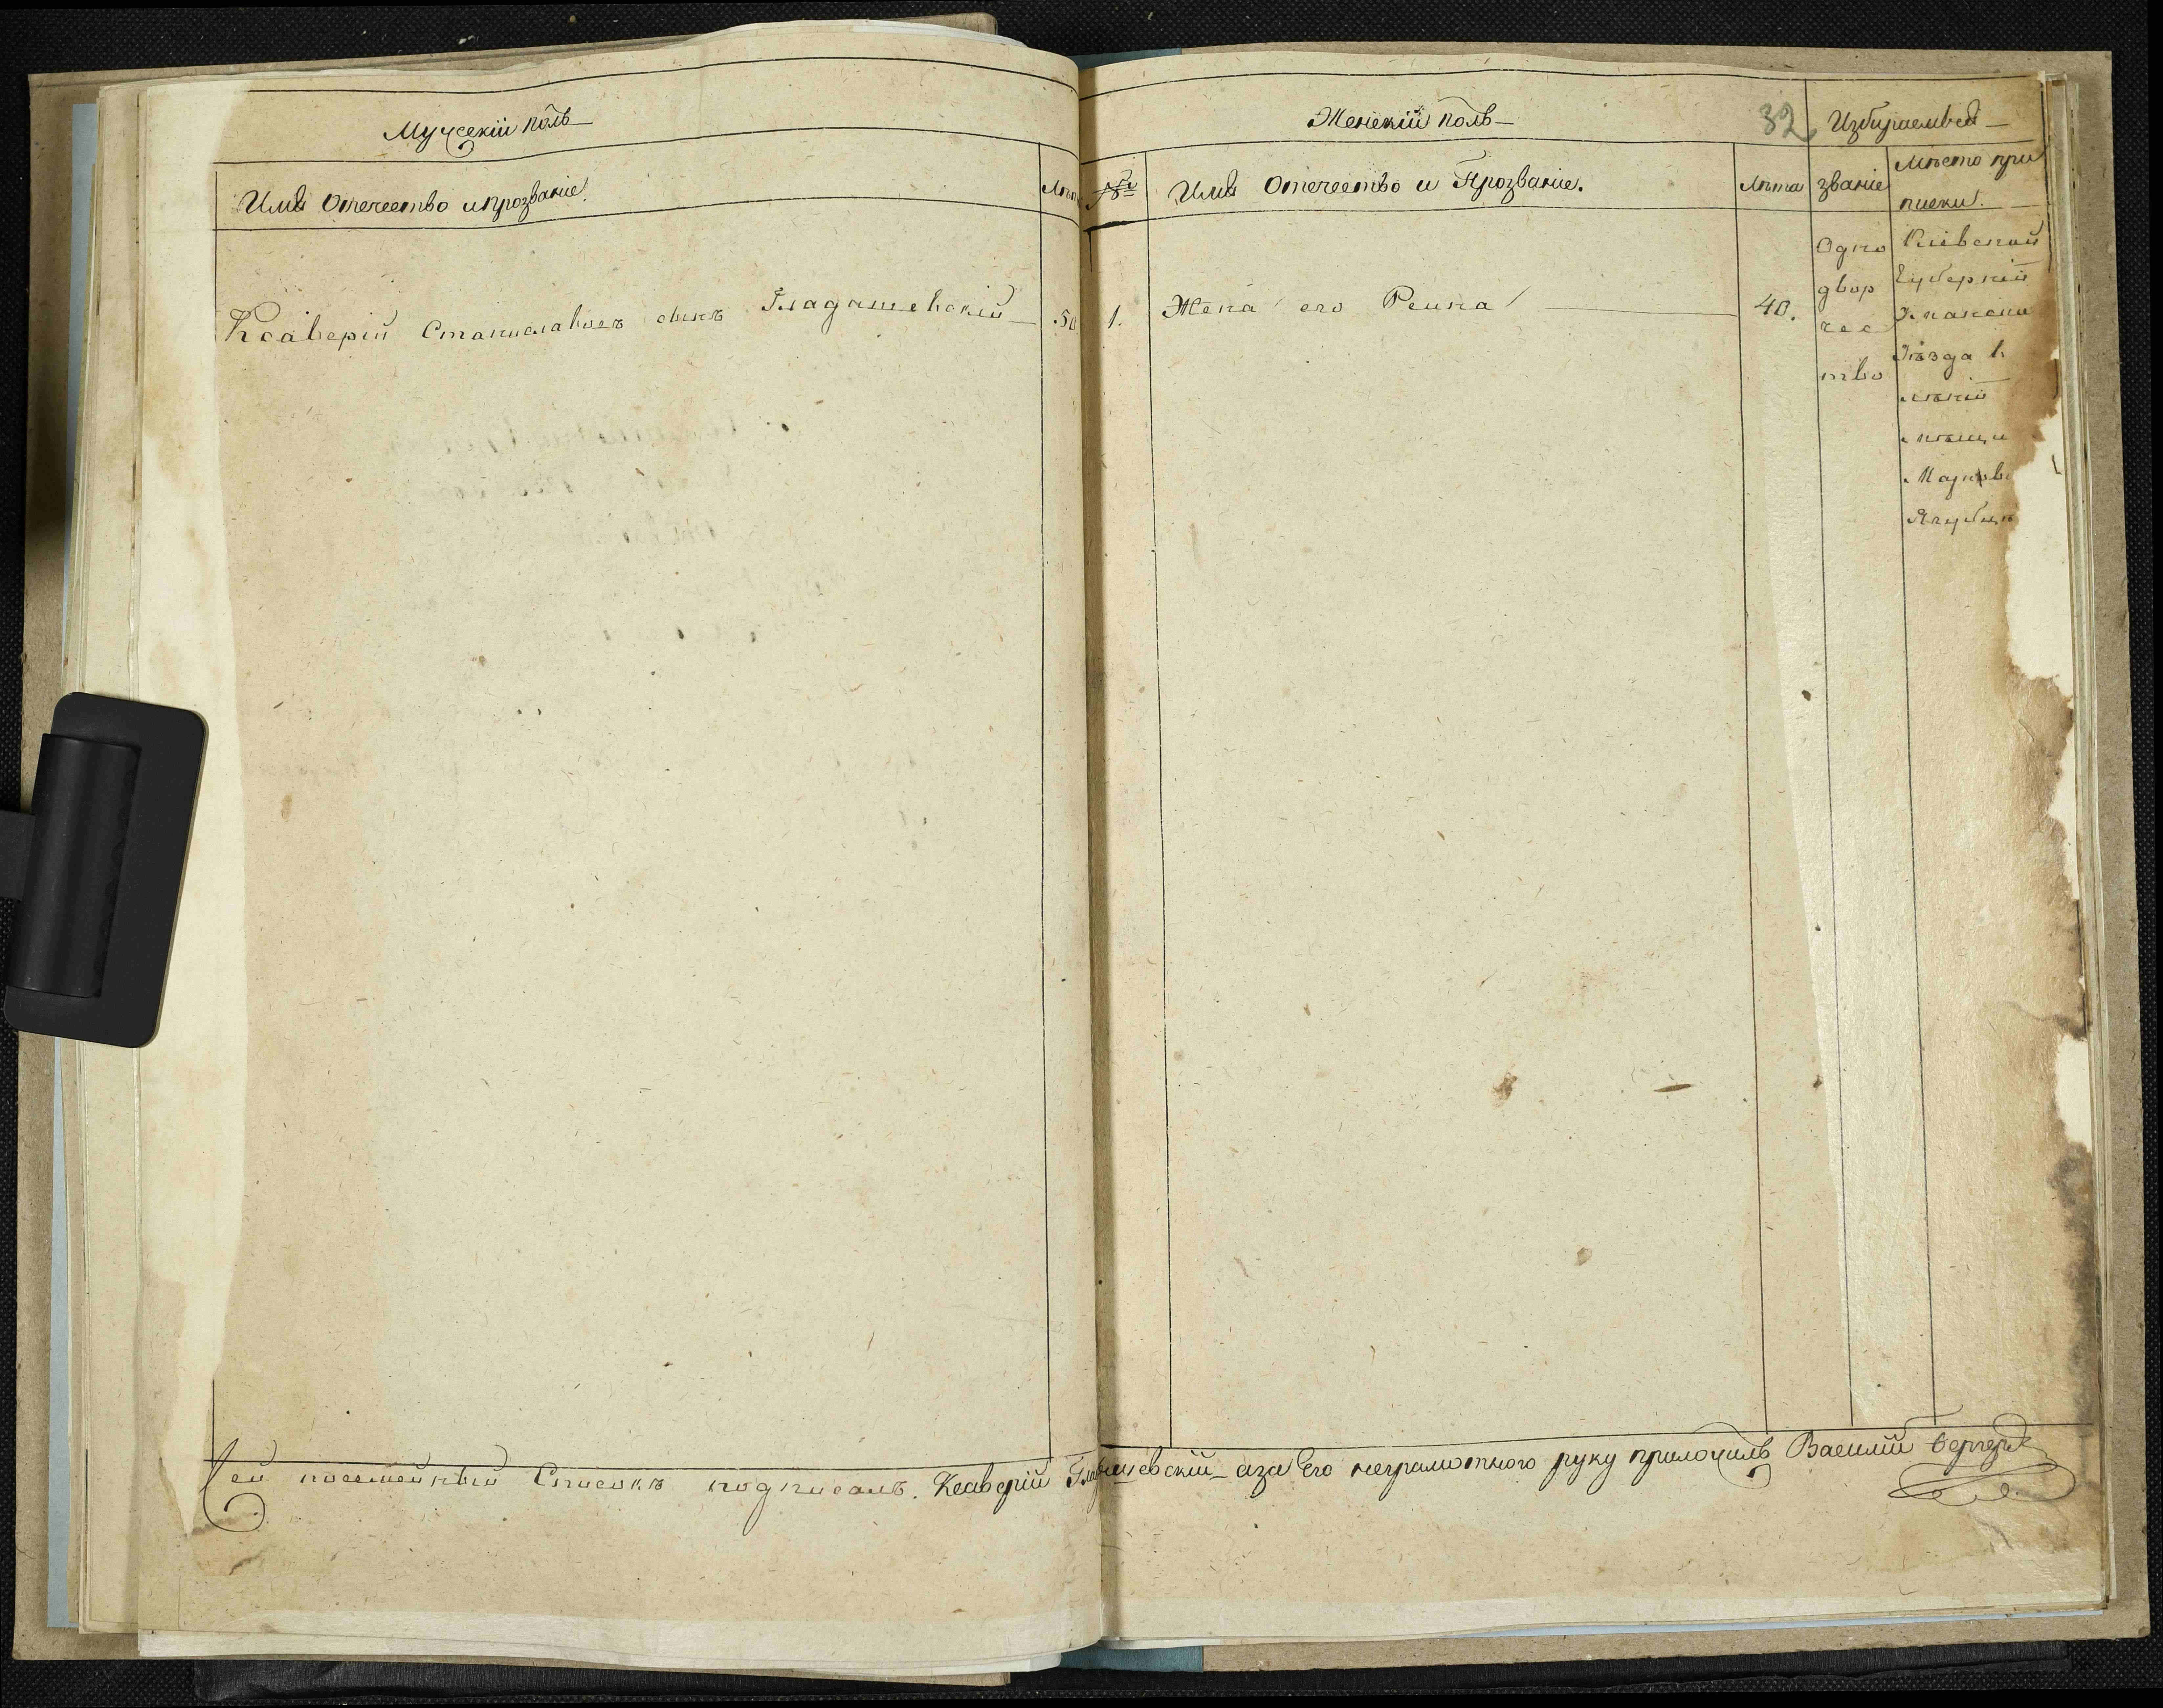 Мужескій полъ
Имя Отечество и прозваніе.
Лѣта
Ксаверій Станиславовъ сынъ Гладашевскій
50
Женскій полъ
32
Избираемое
№
Имя Отечество и Прозваніе.
Лѣта
званіе
Мѣсто при
писки.
1.
Жена его
40.
Одно
двор
чес
тво
Кіевской
Губерніи
Уѣзда
Сей посемейный Списокъ подписалъ. Ксаверій Гладашевскій а за Его неграмотного руку приложилъ Василій